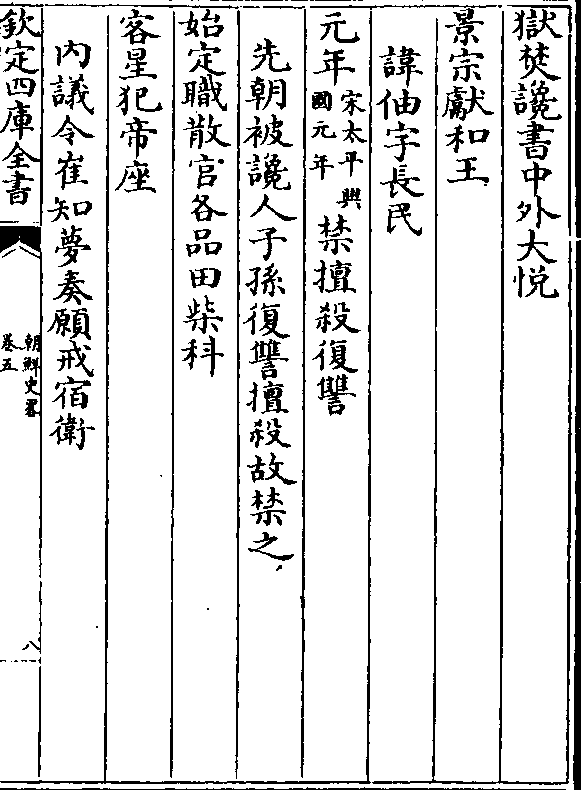 獄焚讒書中外大悦
景宗獻和王
諱伷字長民
元年宋太平興國元年禁擅殺復讐
先朝被讒人子孫復讐擅殺故禁之
始定職散官各品田柴科
客星犯帝座
内議令崔知夢奏願戒宿衛
欽定四庫全書
朝鮮史畧
卷五
八